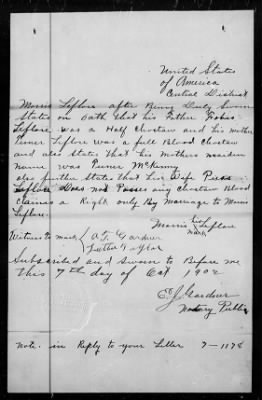 United States
of America
Central District
Morris Leflore after Being Duly Sworn
States on Oath that his Father
Leflore was a Half Choctaw and his Mother
Leflore was a full Blood Choctaw
and also States that his Mothers maiden
name was McKinny
also further States that his Wife
Leflore Does not Posses any Choctaw Blood
Claims a Right only By Marriage to Morris
Leflore.
Morris his Leflore
mark
Witness to mark A.F. Gardner
Luther Tyler
Subscribed and Sworn to Before me
this 7th day of Oct 1902
E J Gardner
Notary Public
Note. in Reply to your Letter 7-1178